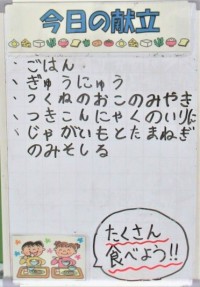 今日の献立
、ごはん
、ぎゅうにゅう
、つくねのおこのみやき
、つきこんにゃくのいりに
、じゃがいもとたまねぎ
のみそしる
たくさん
食べよう!!